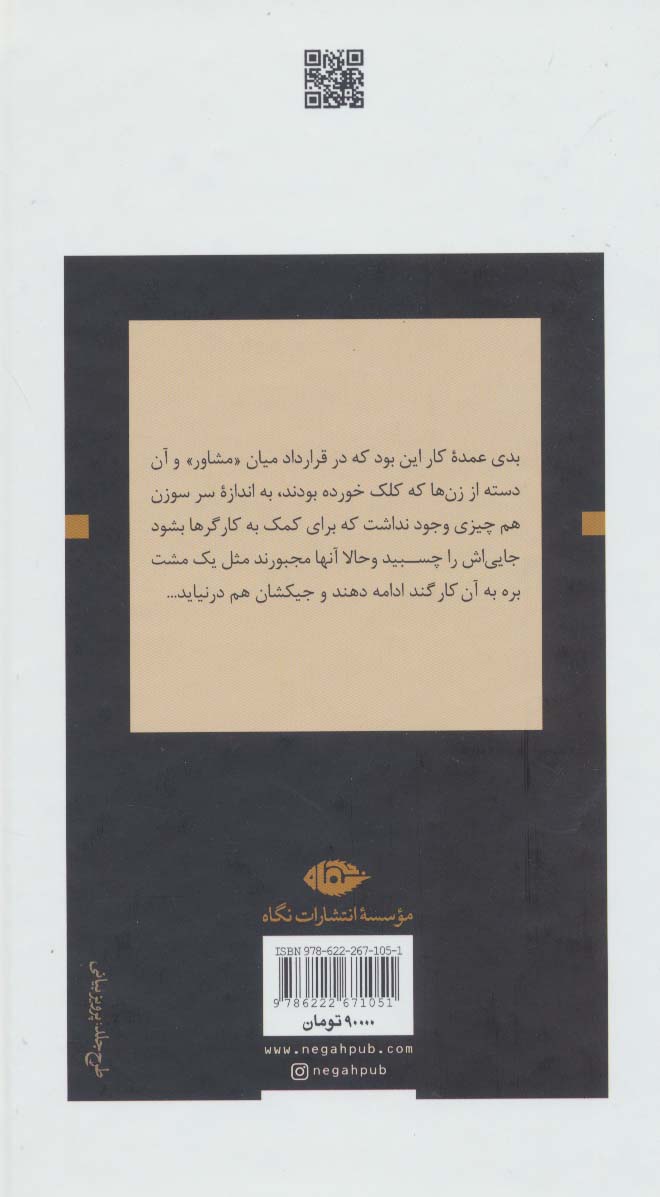 بدی عمدۀ کار این بود که در قرارداد میان «مشاور» و آن
دسته از زن‌ها که کلک خورده بودند، به اندازۀ سر سوزن
هم چیزی وجود نداشت که برای کمک به کارگرها بشود
جایی‌اش را چسبید وحالا آنها مجبورند مثل یک مشت
بره به آن کار گند ادامه دهند و جیکشان هم درنیاید...
نگاه
مؤسسۀ انتشارات نگاه
ISBN 978-622-267-105-1
9 786222 671051
۹۰۰۰۰ تومان
www.negahpub.com
negahpub
طرح جلد: پرویز بیانی